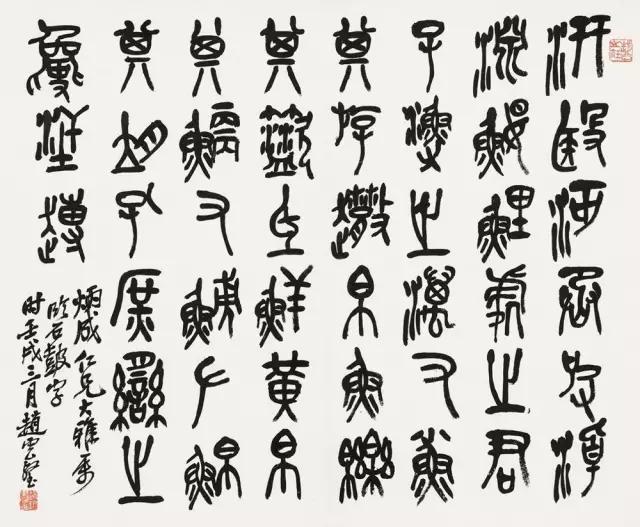 汧殹沔丞皮淖
淵鰋鯉處之君
子漁之澫又小魚
其斿帛魚皪
其氐鮮黃帛
其鯿又鯆又鮊
其孔庶臠之
炳成仁兄大雅屬
臨石鼓字
时壬戌三月趙雲壑